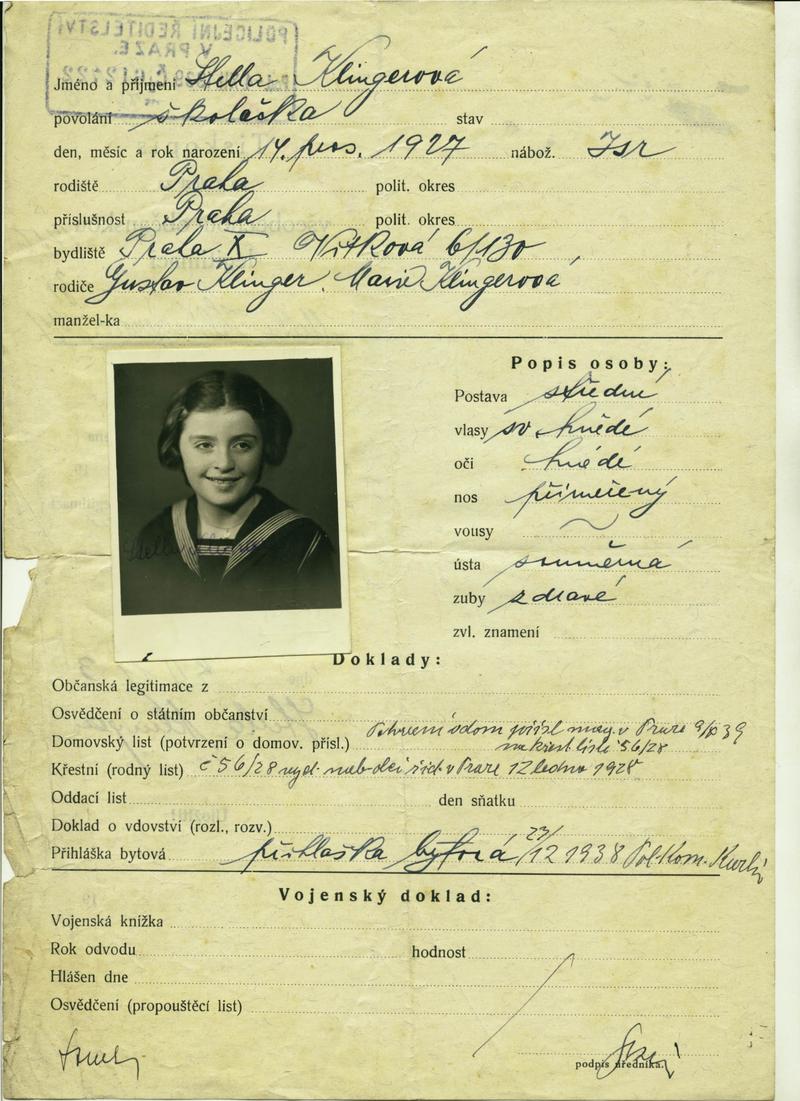 POLICEJNÍ ŘEDITELSTVÍ
V PRAZE.
Jméno a příjmení Stella Klingerová
povolání školačka stav
den, měsíc a rok narození 14. pros. 1927 nábož. Isr
rodiště Praha polit. okres
příslušnost Praha polit. okres
bydliště Praha X Vítková 6/130
rodiče Gustav Klinger, Marie Klingerová
manžel-ka
Popis osoby:
Postava střední
vlasy sv hnědé
oči hnědé
nos přiměřený
vousy
ústa souměrná
zuby zdravé
zvl. znamení
Doklady:
Občanská legitimace z
Osvědčení o státním občanství
Domovský list (potvrzení o domov. přísl.) Potvrzení o dom přísl mag. v Praze 9/X 39
na křest listě 56/28
Křestní (rodný list) č 56/28 vyd. náb. obcí žid v Praze 12 ledna 1928
Oddací list den sňatku
Doklad o vdovství (rozl., rozv.)
Přihláška bytová přihláška bytová 23/12 1938 Pol. Kom.
Vojenský doklad:
Vojenská knížka
Rok odvodu hodnost
Hlášen dne
Osvědčení (propouštěcí list)
podpis úředníka.